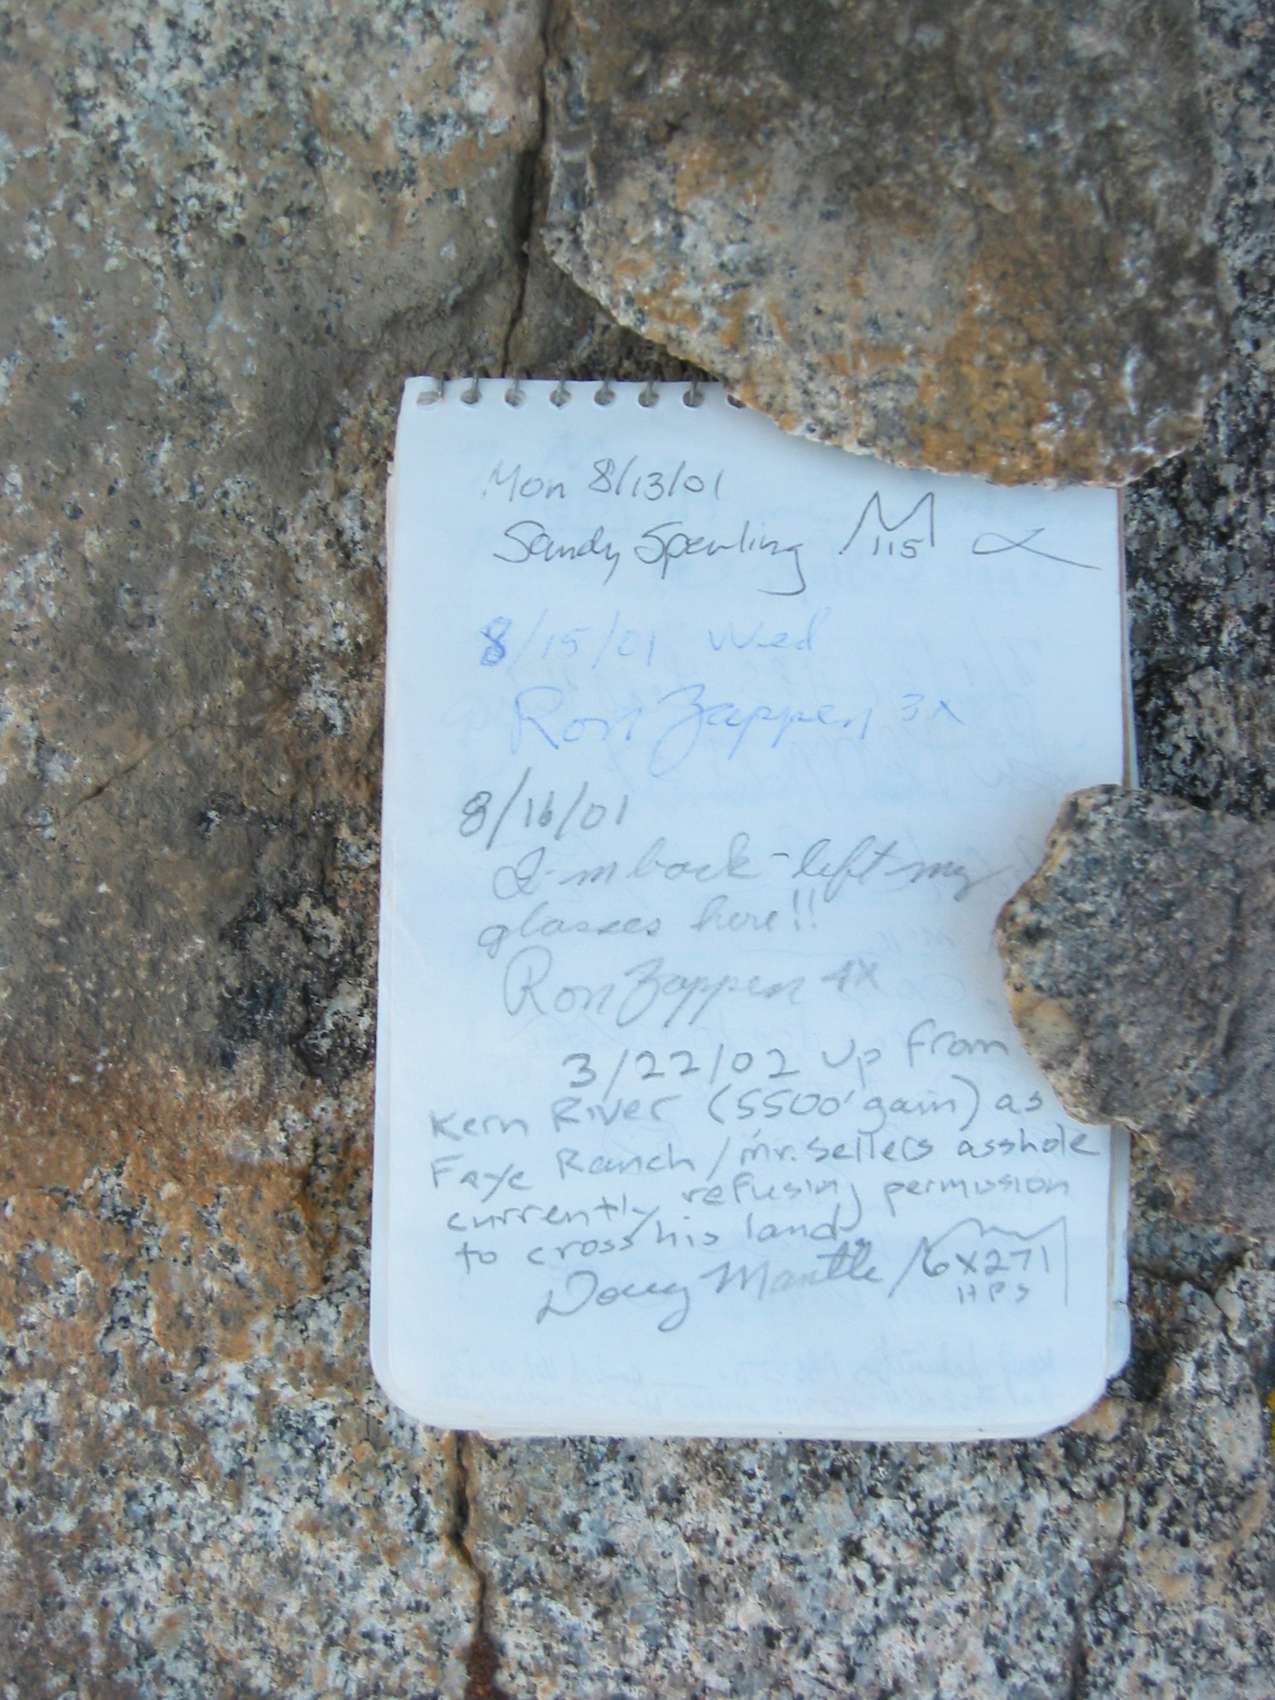 Mon 8/13/01
Sandy Sperling 115
8/15/01 Wed
Ron Zappen 3x
8/16/01
I'm back - left my
glasses here!!
Ron Zappen 4x
3/22/02 up from
Kern River (5500' gain) as
Faye Ranch/mr. Sellers asshole
currently refusing permission
to cross his land.
Doug Mantle 6x271
HPS